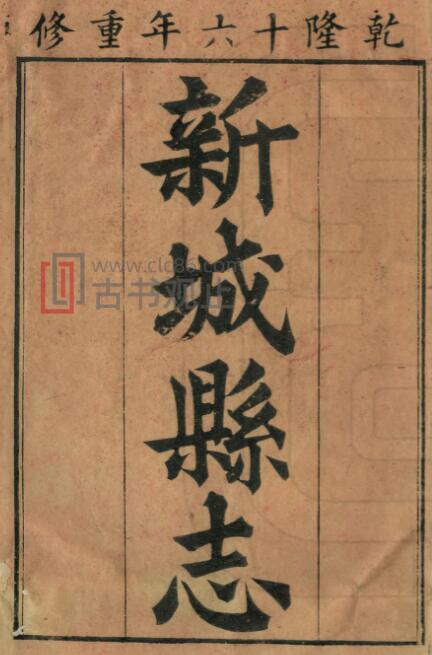 乾隆十六年重修
新城縣志
www.clc86.com
古书观止